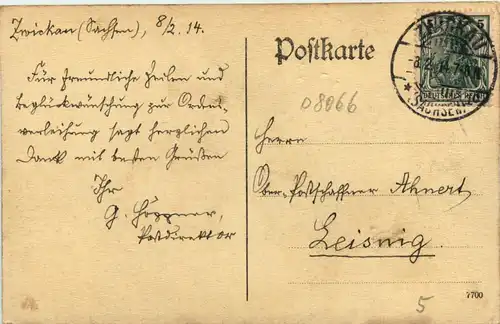 Zwickau (Sachsen), 8/2. 14.
Für freundliche Zeilen und
Beglückwünschung zur Ordens-
verleihung sagt herzlichen
Dank mit besten Grüßen
Ihr
G. Höppner,
Postdirektor
Postkarte
ZWICKAU
-8.2.14.7-
(SACHSEN)
5
08066
Herrn
Ober-Postschaffner Ahnert,
Leisnig.
5
7700